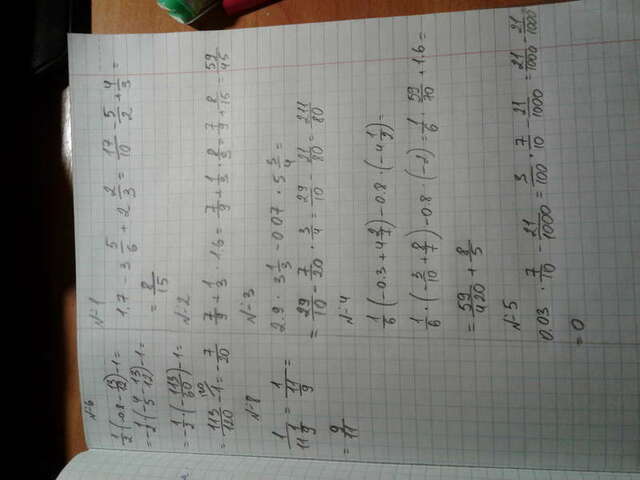 N=6
1/2·(-0.8-13/12)-1=
=-1/2·(-4/5-13/12)-1=
=-1/2·(-113/60)-1=
=113/120-1=-7/20
N=8
1/(11 1/9)=1/(11/9)=
=9/11
N=1
1.7-3 5/6+2 2/3=17/10-5/2+4/3=
=8/15
N=2
7/9+1/3·1.6=7/9+1/3·8/5=7/9+8/15=59/45
N=3
2.9·3 1/3-0.07·5 3/4=
=29/10-7/20·3/4=29/10-21/80=211/80
N=4
1/6·(-0.3+4 2/7)-0.8·(-4 1/2)=
1/6·(-3/10+8/7)-0.8·(-2)=1/6·59/70+1.6=
=59/420+8/5
N=5
0.03·7/10-21/1000=3/100·7/10-21/1000=21/1000-21/1000
=0